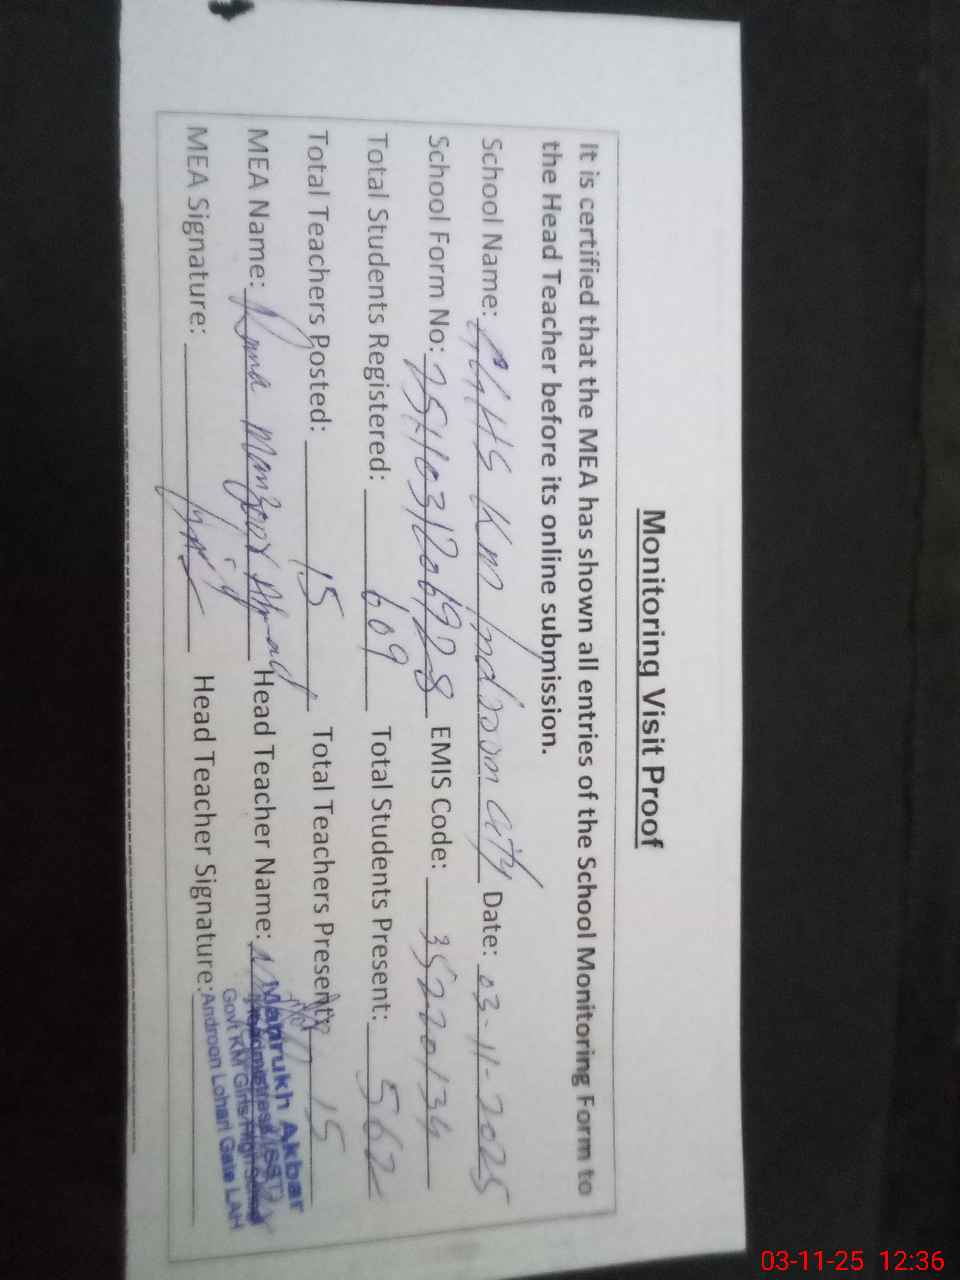 Monitoring Visit Proof
It is certified that the MEA has shown all entries of the School Monitoring Form to
the Head Teacher before its online submission.
School Name: GGHS KM Indroon City Date: 03-11-2025
School Form No: EMIS Code: 35220134
Total Students Registered: 609 Total Students Present: 562
Total Teachers Posted: 15 Total Teachers Present: 15
MEA Name: Rana Manzoor Ahmad Head Teacher Name:
MEA Signature: Head Teacher Signature:
Mahrukh Akbar
Govt KM Girls High School
Androon Lohari Gate LAH
03-11-25 12:36